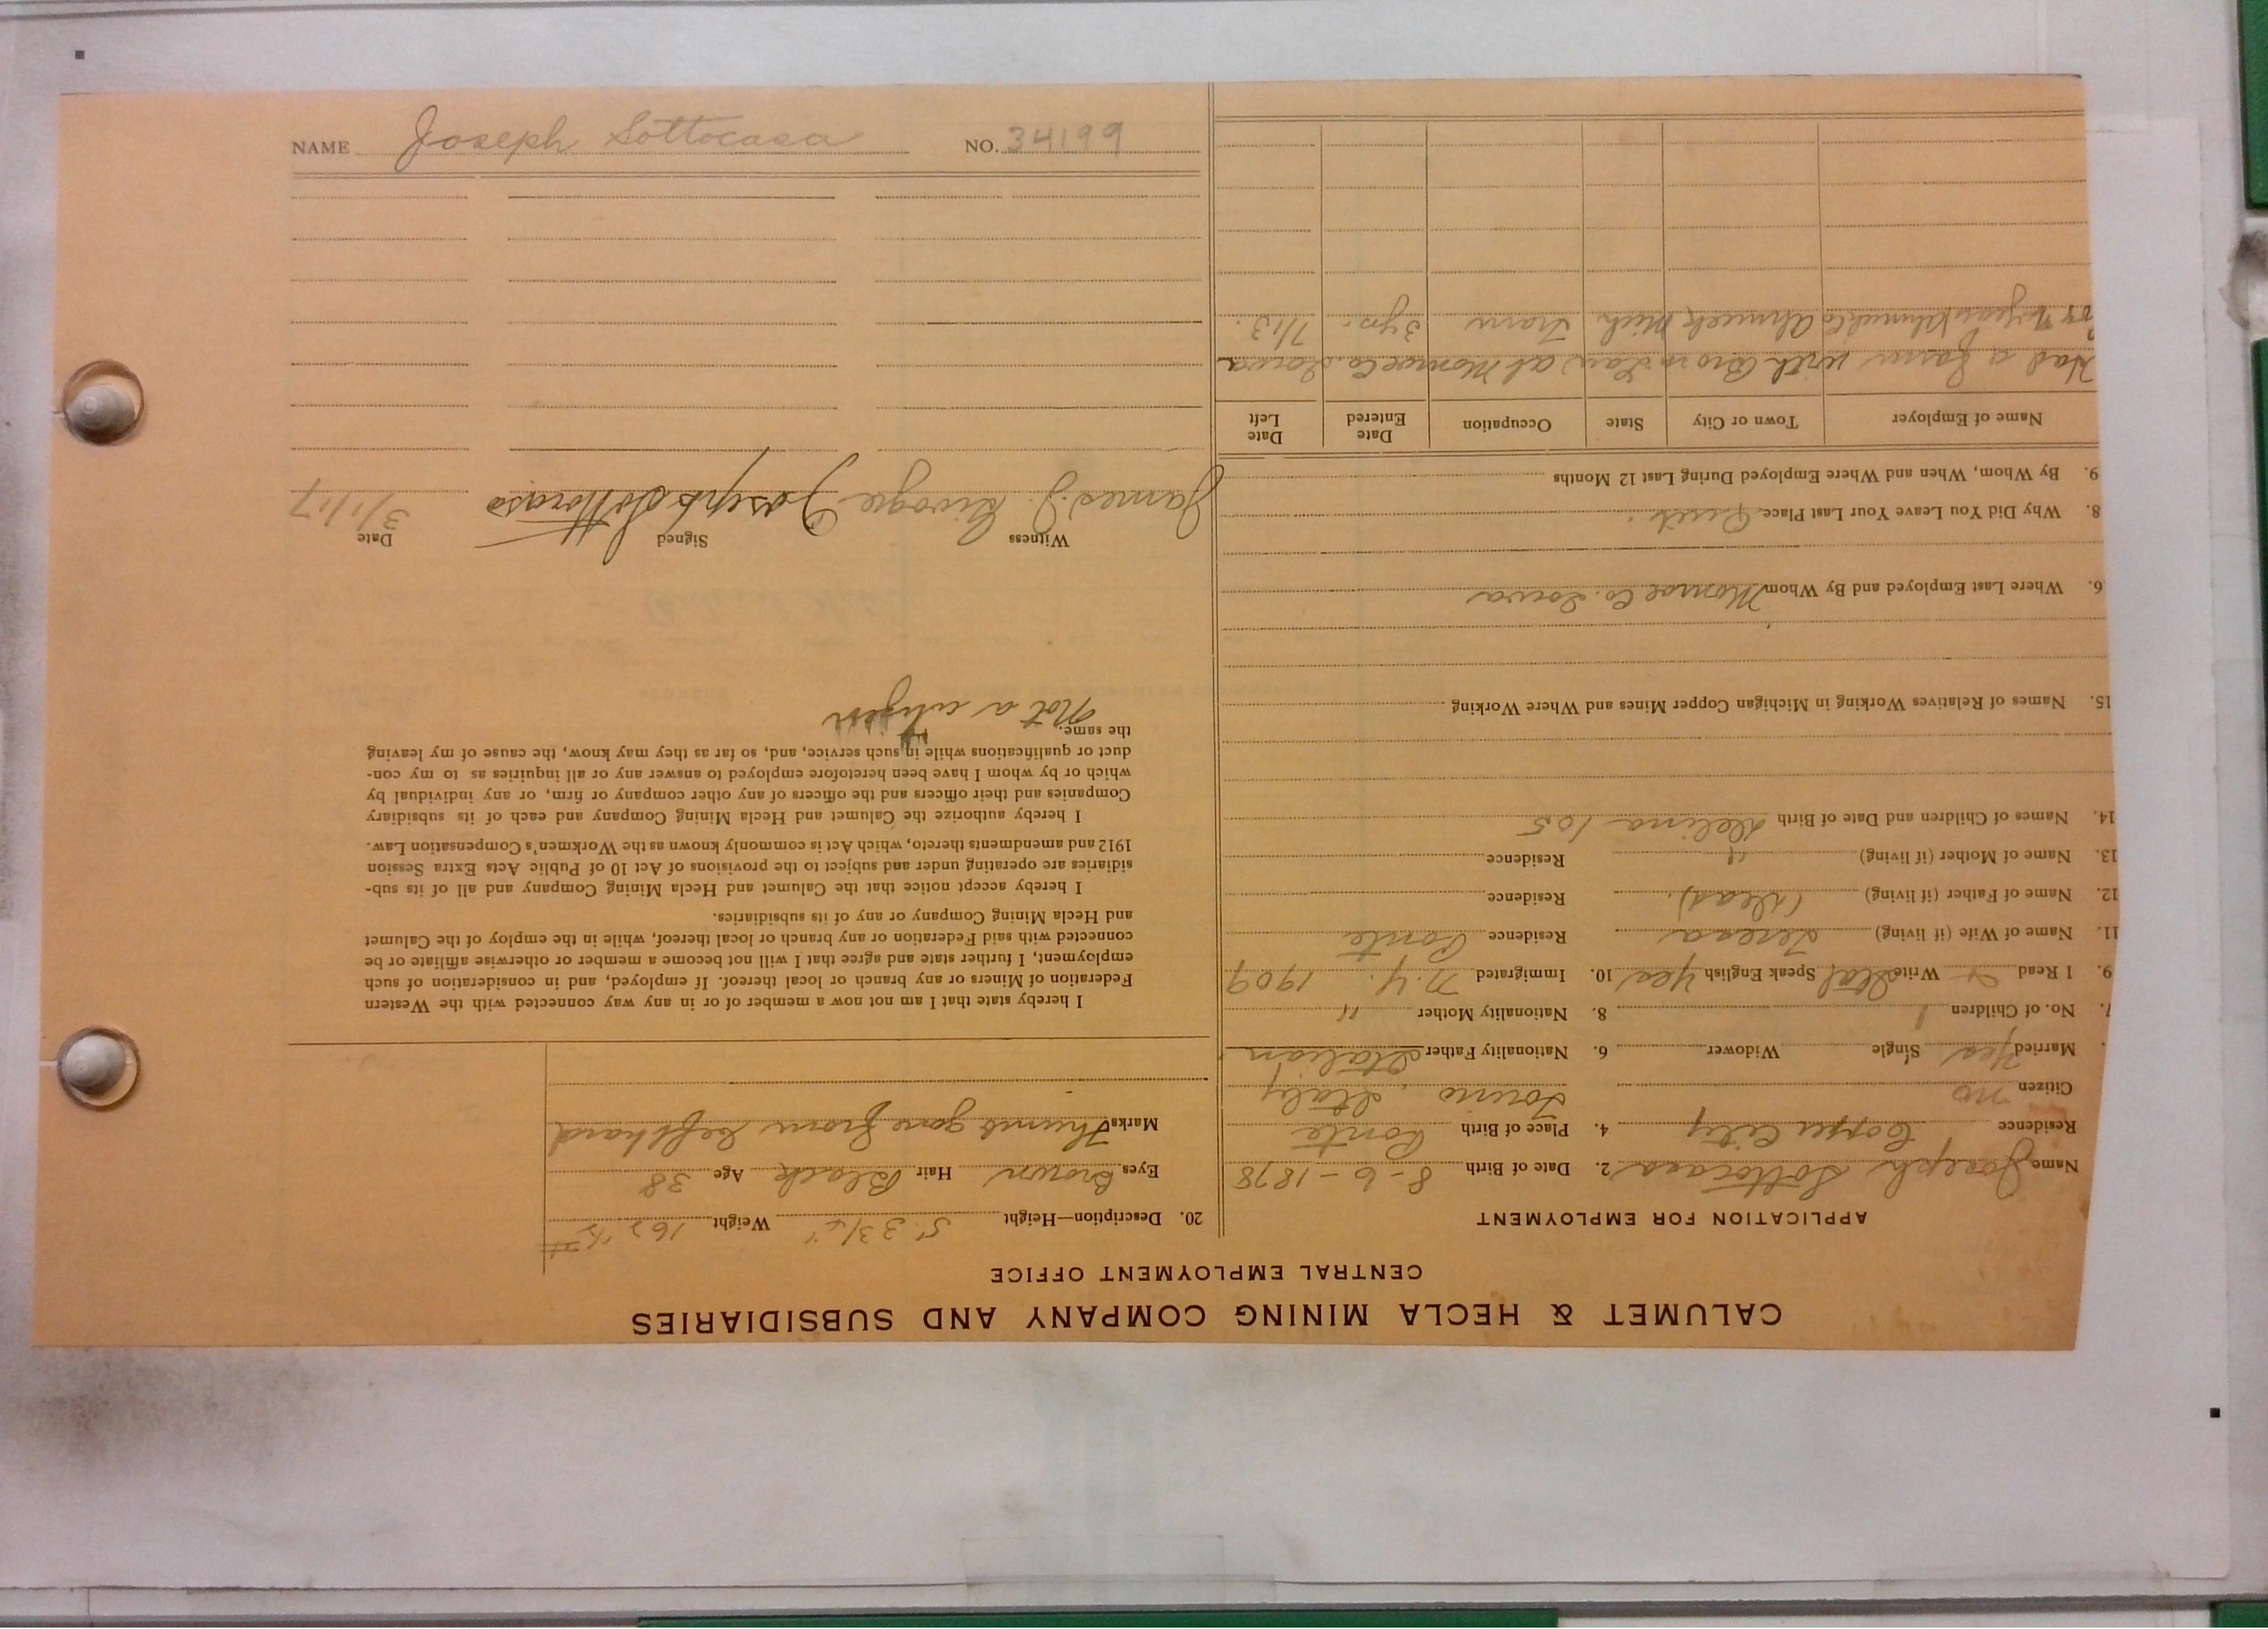 NAME Joseph Sottocasa NO. 34199
CALUMET & HECLA MINING COMPANY AND SUBSIDIARIES
CENTRAL EMPLOYMENT OFFICE
APPLICATION FOR EMPLOYMENT
Name Joseph Sottocasa 2. Date of Birth 8-6-1878
Residence Copper City 4. Place of Birth Conte
Citizen no Torino, Italy
Married Yes Single Widower 6. Nationality Father Italian
7. No. of Children 1 8. Nationality Mother "
9. I Read & Write Ital Speak English yes 10. Immigrated N.Y. 1909
11. Name of Wife (if living) Teresa Residence Conte
12. Name of Father (if living) (dead). Residence
13. Name of Mother (if living) " Residence
14. Names of Children and Date of Birth Delina 10.5
15. Names of Relatives Working in Michigan Copper Mines and Where Working
6. Where Last Employed and By Whom Monroe Co. Iowa
8. Why Did You Leave Your Last Place
9. By Whom, When and Where Employed During Last 12 Months
Name of Employer Town or City State Occupation Date Entered Date Left
Had a farm with Bro in Law at Monroe Co. Iowa
Ahmeek Mich. Tram 3 yrs. 7/13.
20. Description—Height 5' 3 3/4" Weight 162 1/2 #
Eyes Brown Hair Black Age 38
Marks Thumb gone from left hand
I hereby state that I am not now a member of or in any way connected with the Western
Federation of Miners or any branch or local thereof. If employed, and in consideration of such
employment, I further state and agree that I will not become a member or otherwise affiliate or be
connected with said Federation or any branch or local thereof, while in the employ of the Calumet
and Hecla Mining Company or any of its subsidiaries.
I hereby accept notice that the Calumet and Hecla Mining Company and all of its sub-
sidiaries are operating under and subject to the provisions of Act 10 of Public Acts Extra Session
1912 and amendments thereto, which Act is commonly known as the Workmen's Compensation Law.
I hereby authorize the Calumet and Hecla Mining Company and each of its subsidiary
Companies and their officers and the officers of any other company or firm, or any individual by
which or by whom I have been heretofore employed to answer any or all inquiries as to my con-
duct or qualifications while in such service, and, so far as they may know, the cause of my leaving
the same.
Not a citizen
Witness Signed Date
James J. Joseph Sottocasa 3/1/17